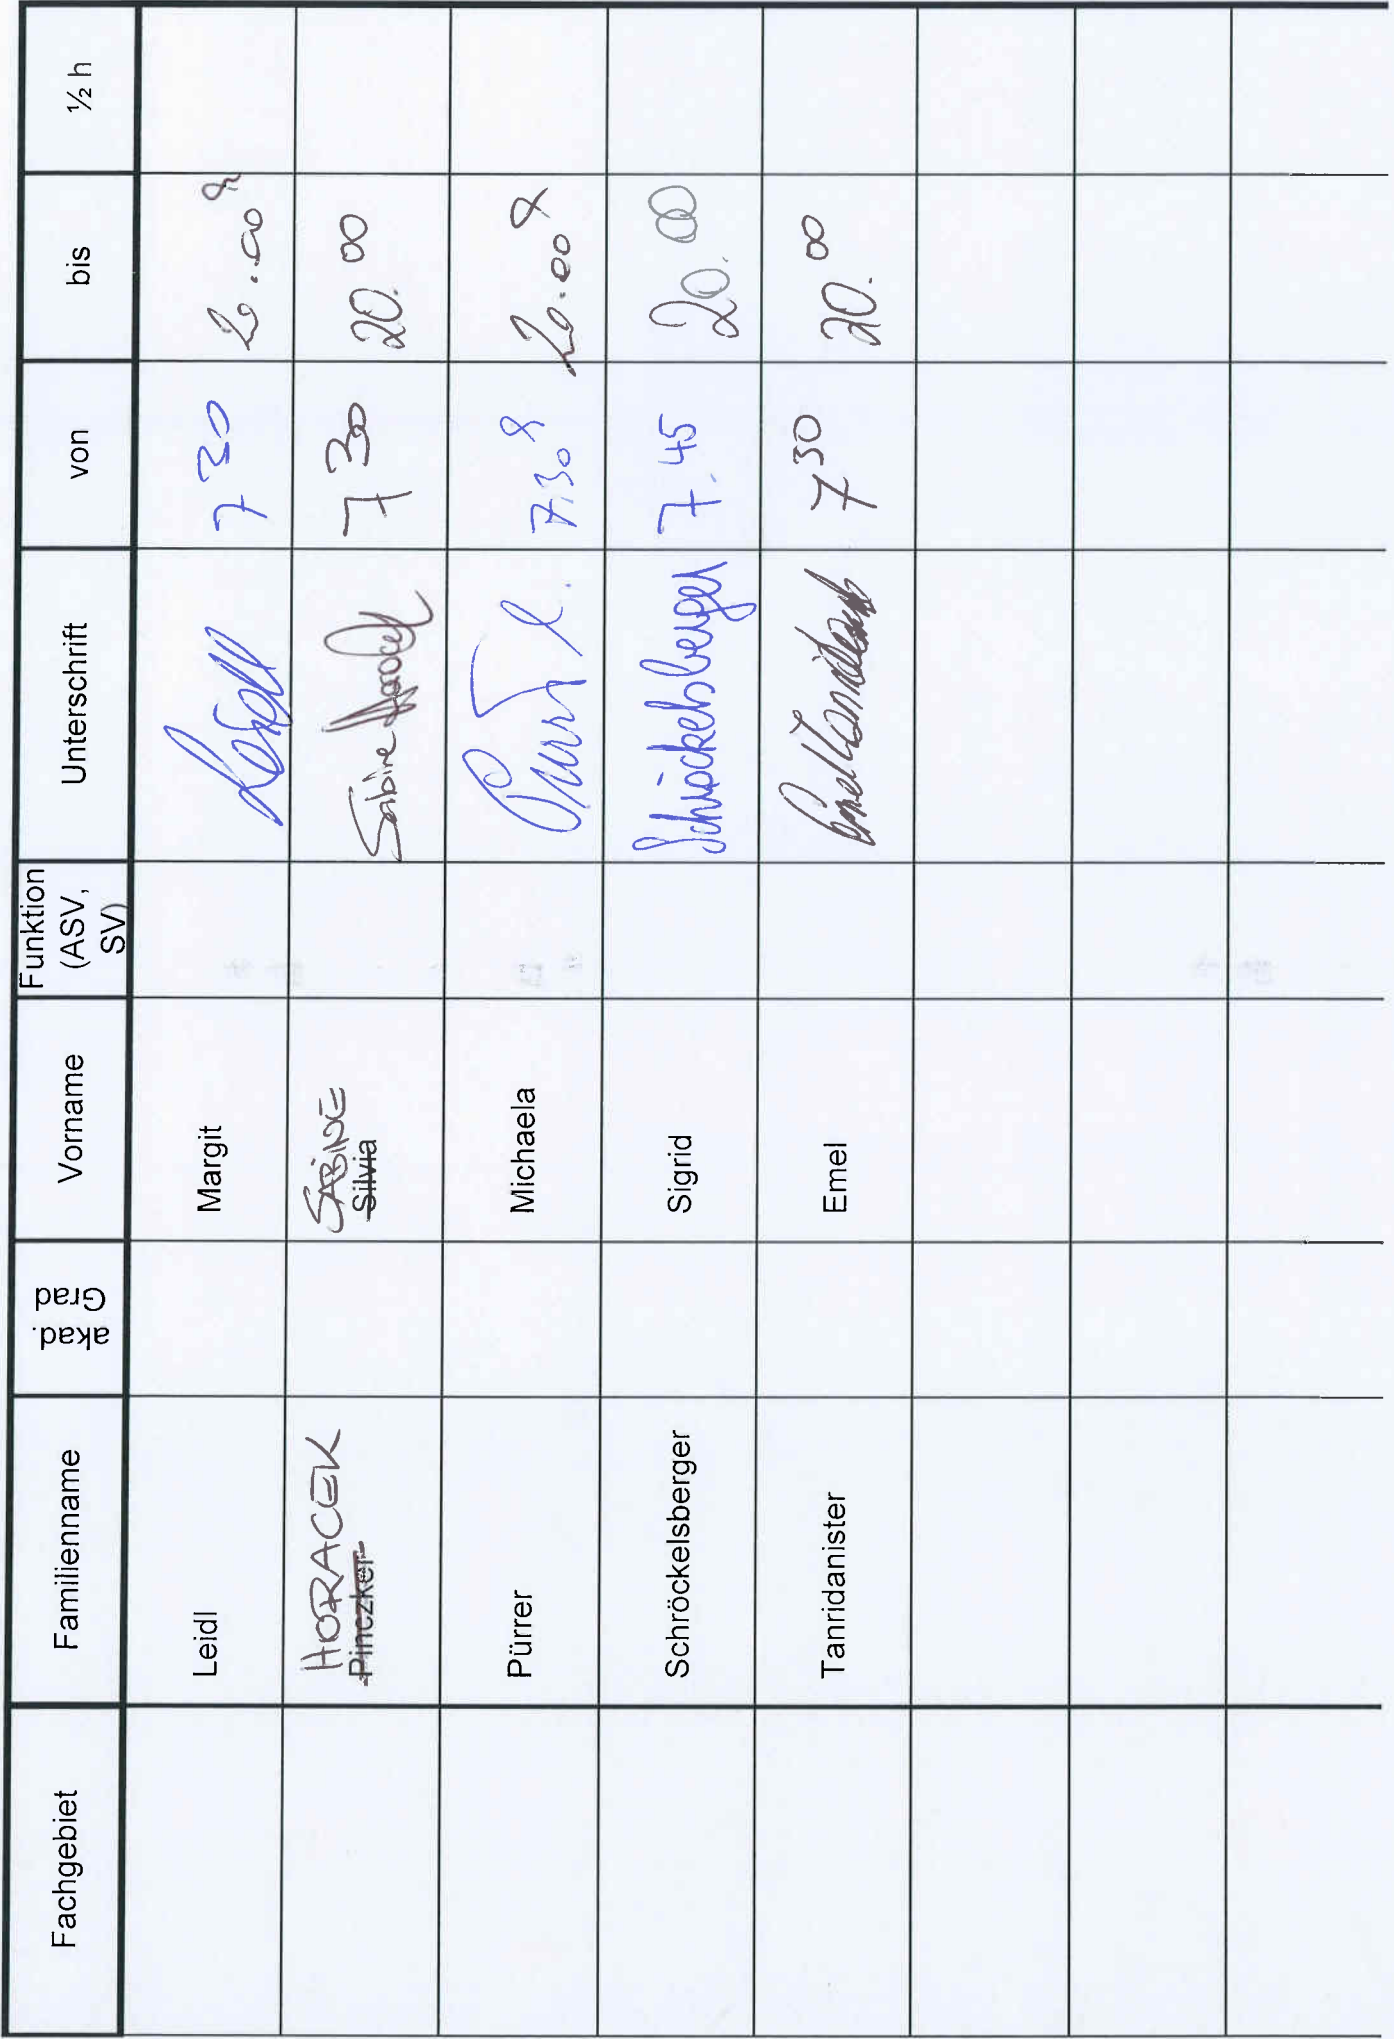 Fachgebiet Familienname akad. Grad Vorname Funktion (ASV, SV) Unterschrift von bis ½ h
Leidl Margit Leidl 7 30 20.00
HORACEK SABINE
Pinczker Silvia Sabine Horacek 7 30 20.00
Pürrer Michaela 7.30 20.00
Schröckelsberger Sigrid Schröckelsberger 7.45 20.00
Tanridanister Emel 7 30 20.00